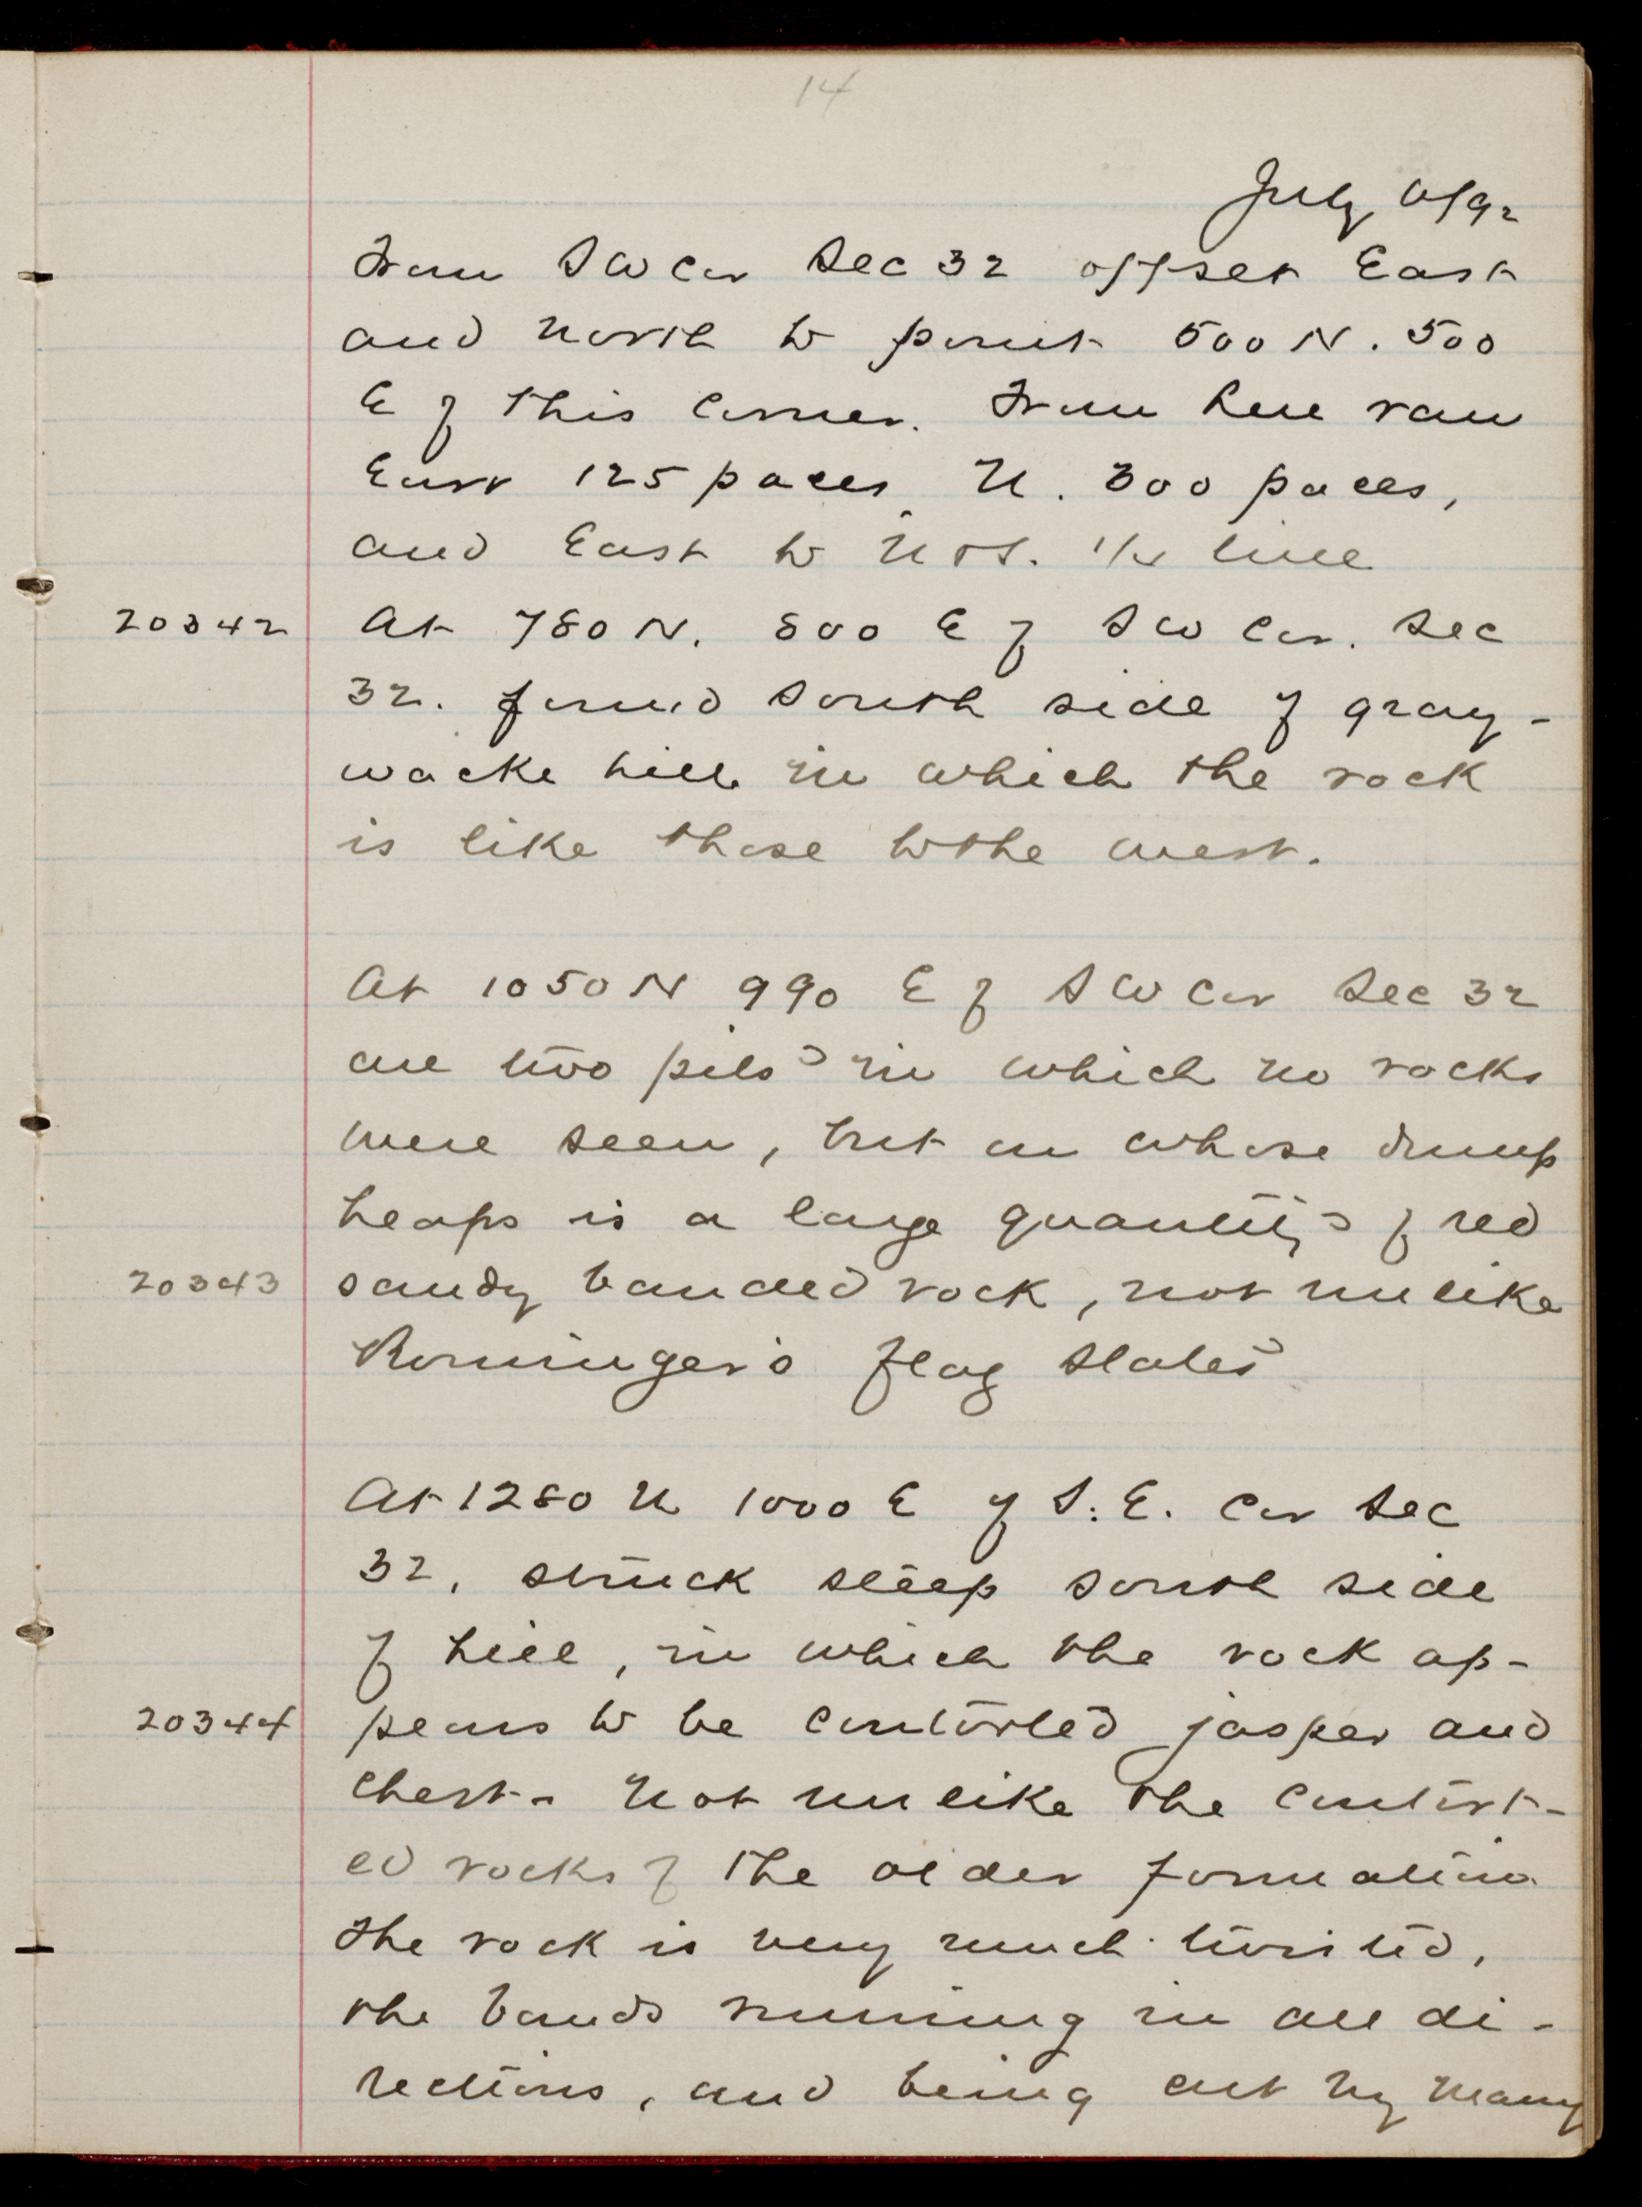 14
July 6/92
From SW Cor Sec 32 offset East
and north to point 500 N. 500
E of this corner. From here ran
East 125 paces, N. 300 paces,
and East to N & S. 1/4 line
20342 At 780 N. 800 E of SW Cor. Sec
32. found south side of gray-
wacke hill in which the rock
is like those to the west.
At 1050 N 990 E of SW Cor Sec 32
are two pits in which no rocks
were seen, but on whose dump
heaps is a large quantity of red
20343 sandy banded rock, not unlike
Romingers flag slates
At 1280 N 1000 E of S.E. Cor Sec
32, struck steep south side
of hill, in which the rock ap-
20344 pears to be contorted jasper and
chert - not unlike the contort-
ed rocks of the older formation
The rock is very much twisted,
the bands running in all di-
rections, and being cut by many